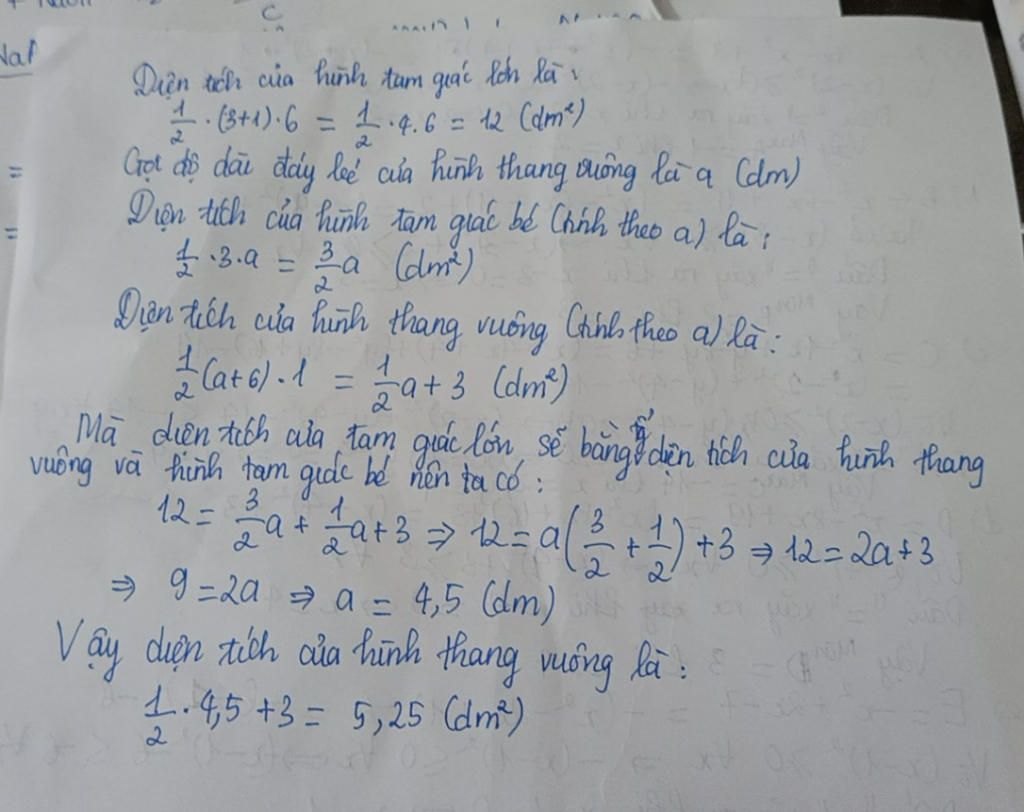 Diện tích của hình tam giác lớn là:
1/2 · (3+1) · 6 = 1/2 · 4 . 6 = 12 (dm²)
Gọi độ dài đáy bé của hình thang vuông là a (dm)
Diện tích của hình tam giác bé (tính theo a) là:
1/2 · 3 · a = 3/2 a (dm²)
Diện tích của hình thang vuông (tính theo a) là:
1/2 (a+6) · 1 = 1/2 a + 3 (dm²)
Mà diện tích của tam giác lớn sẽ bằng tổng diện tích của hình thang
vuông và hình tam giác bé nên ta có:
12 = 3/2 a + 1/2 a + 3 ⇒ 12 = a(3/2 + 1/2) + 3 ⇒ 12 = 2a + 3
⇒ 9 = 2a ⇒ a = 4,5 (dm)
Vậy diện tích của hình thang vuông là:
1/2 · 4,5 + 3 = 5,25 (dm²)